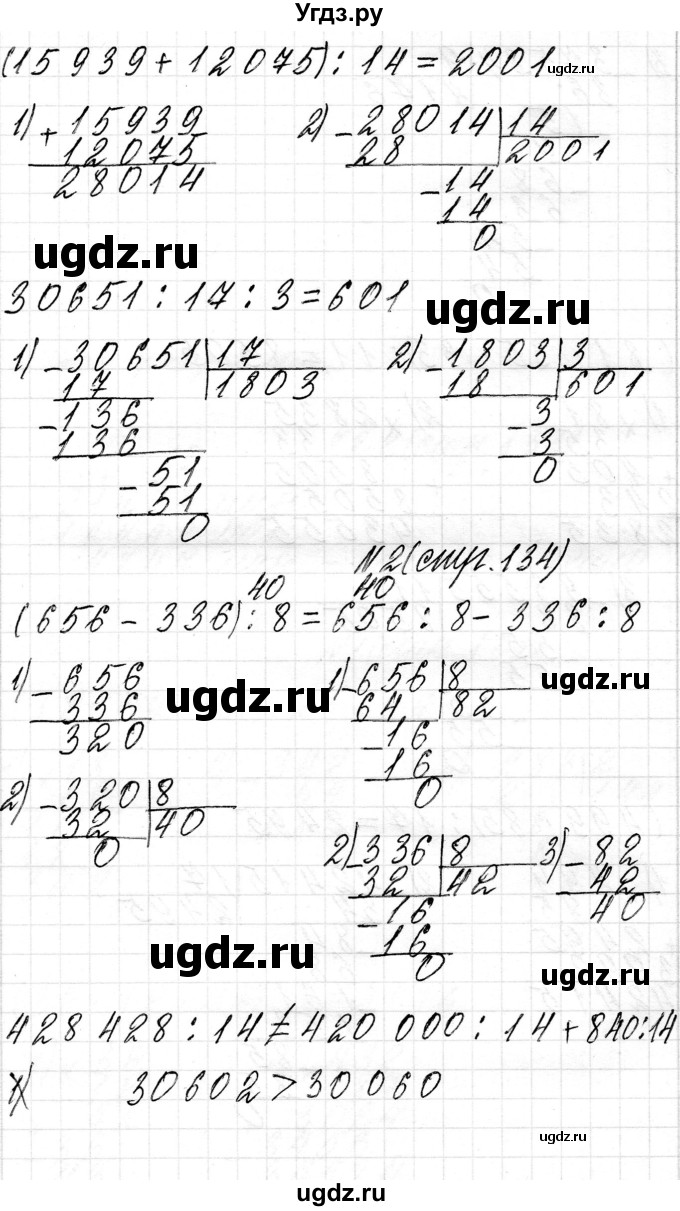 Угдз.ру
(15 939 + 12 075) : 14 = 2001
ugdz.ru
1) + 15939   2) - 28014 | 14
12075   28   2001
28014   - 14
14
0
ugdz.ru
30651 : 17 : 3 = 601
ugdz.ru
1) - 30651 | 17   2) - 1803 | 3
17   1803   18   601
- 136   - 3
136   3
- 51   0
51
0
№2 (стр. 134)
40   40
(656 - 336) : 8 = 656 : 8 - 336 : 8
1) - 656   1) - 656 | 8   ugdz.ru
336   ugdz.ru   64   82
320   - 16
16
2) - 320 | 8   0
32   40
0   2) - 336 | 8   3) - 82
32   42   42
- 16   40
ugdz.ru   16   ugdz.ru
0
428 428 : 14 ≠ 420 000 : 14 + 840 : 14
30602 > 30060
ugdz.ru
ugdz.ru